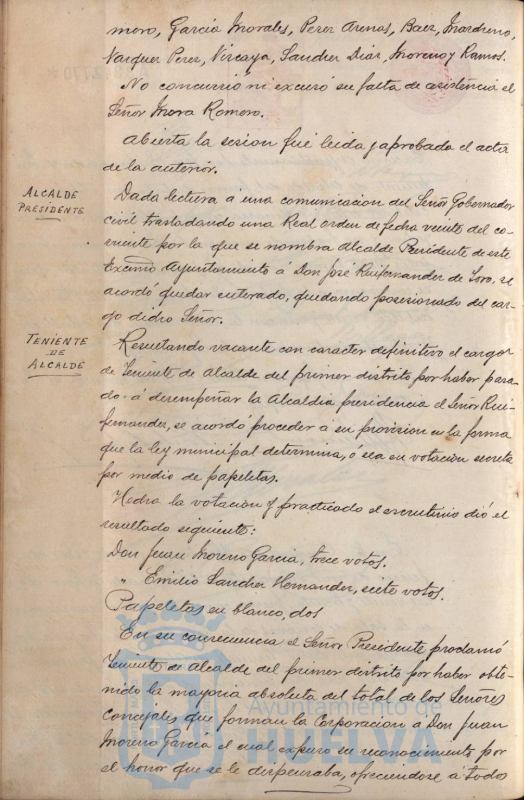 moro, Garcia Morales, Perez Arenas, Baez, Mardreno,
Vazquez Perez, Vizcaya, Sanchez Diaz, Moreno y Ramos.
No concurrió ni excusó su falta de asistencia el
Señor Mora Romero.
Abierta la sesion fué leida y aprobada el acta
de la anterior.
ALCALDE
PRESIDENTE
Dada lectura á una comunicacion del Señor Gobernador
civil trasladando una Real orden de fecha veinte del co-
rriente por la que se nombra Alcalde Presidente de este
Excmo Ayuntamiento á Don José Ruifernandez de Toro, se
acordó quedar enterado, quedando posesionado del car-
go dicho Señor.
TENIENTE
DE
ALCALDE
Resultando vacante con caracter definitivo el cargo
de Teniente de Alcalde del primer distrito por haber pasa-
do á desempeñar la Alcaldia presidencia el Señor Rui-
fernandez, se acordó proceder á su provision en la forma
que la ley municipal determina, ó sea en votación secreta
por medio de papeletas.
Hecha la votación y practicado el escrutinio dió el
resultado siguiente:
Don Juan Moreno Garcia, trece votos.
" Emilio Sanchez Hernandez, siete votos.
Papeletas en blanco, dos
En su consecuencia el Señor Presidente proclamó
Teniente de Alcalde del primer distrito por haber obte-
nido la mayoria absoluta del total de los Señores
Concejales que forman la Corporacion á Don Juan
Moreno Garcia el cual expuso su reconocimiento por
el honor que se le dispensaba, ofreciendose á todos
Ayuntamiento de
HUELVA